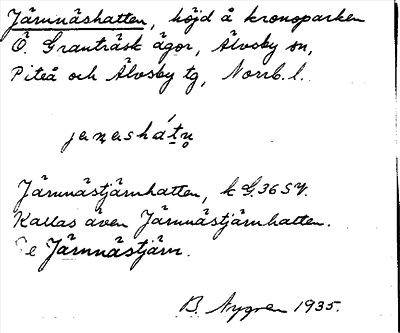 Järnnäshatten, höjd å kronoparken
Ö. Granträsk ägor, Älvsby sn,
Piteå och Älvsby tg, Norrb. l.
Järnnästjärnhatten, k G.36 SV.
Kallas även Järnnästjärnhatten.
Se Järnnästjärn.
B. Nygren 1935.